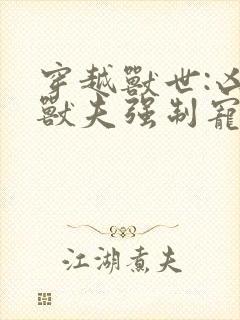 穿越獸世:凶
獸夫强制寵
江湖煮夫